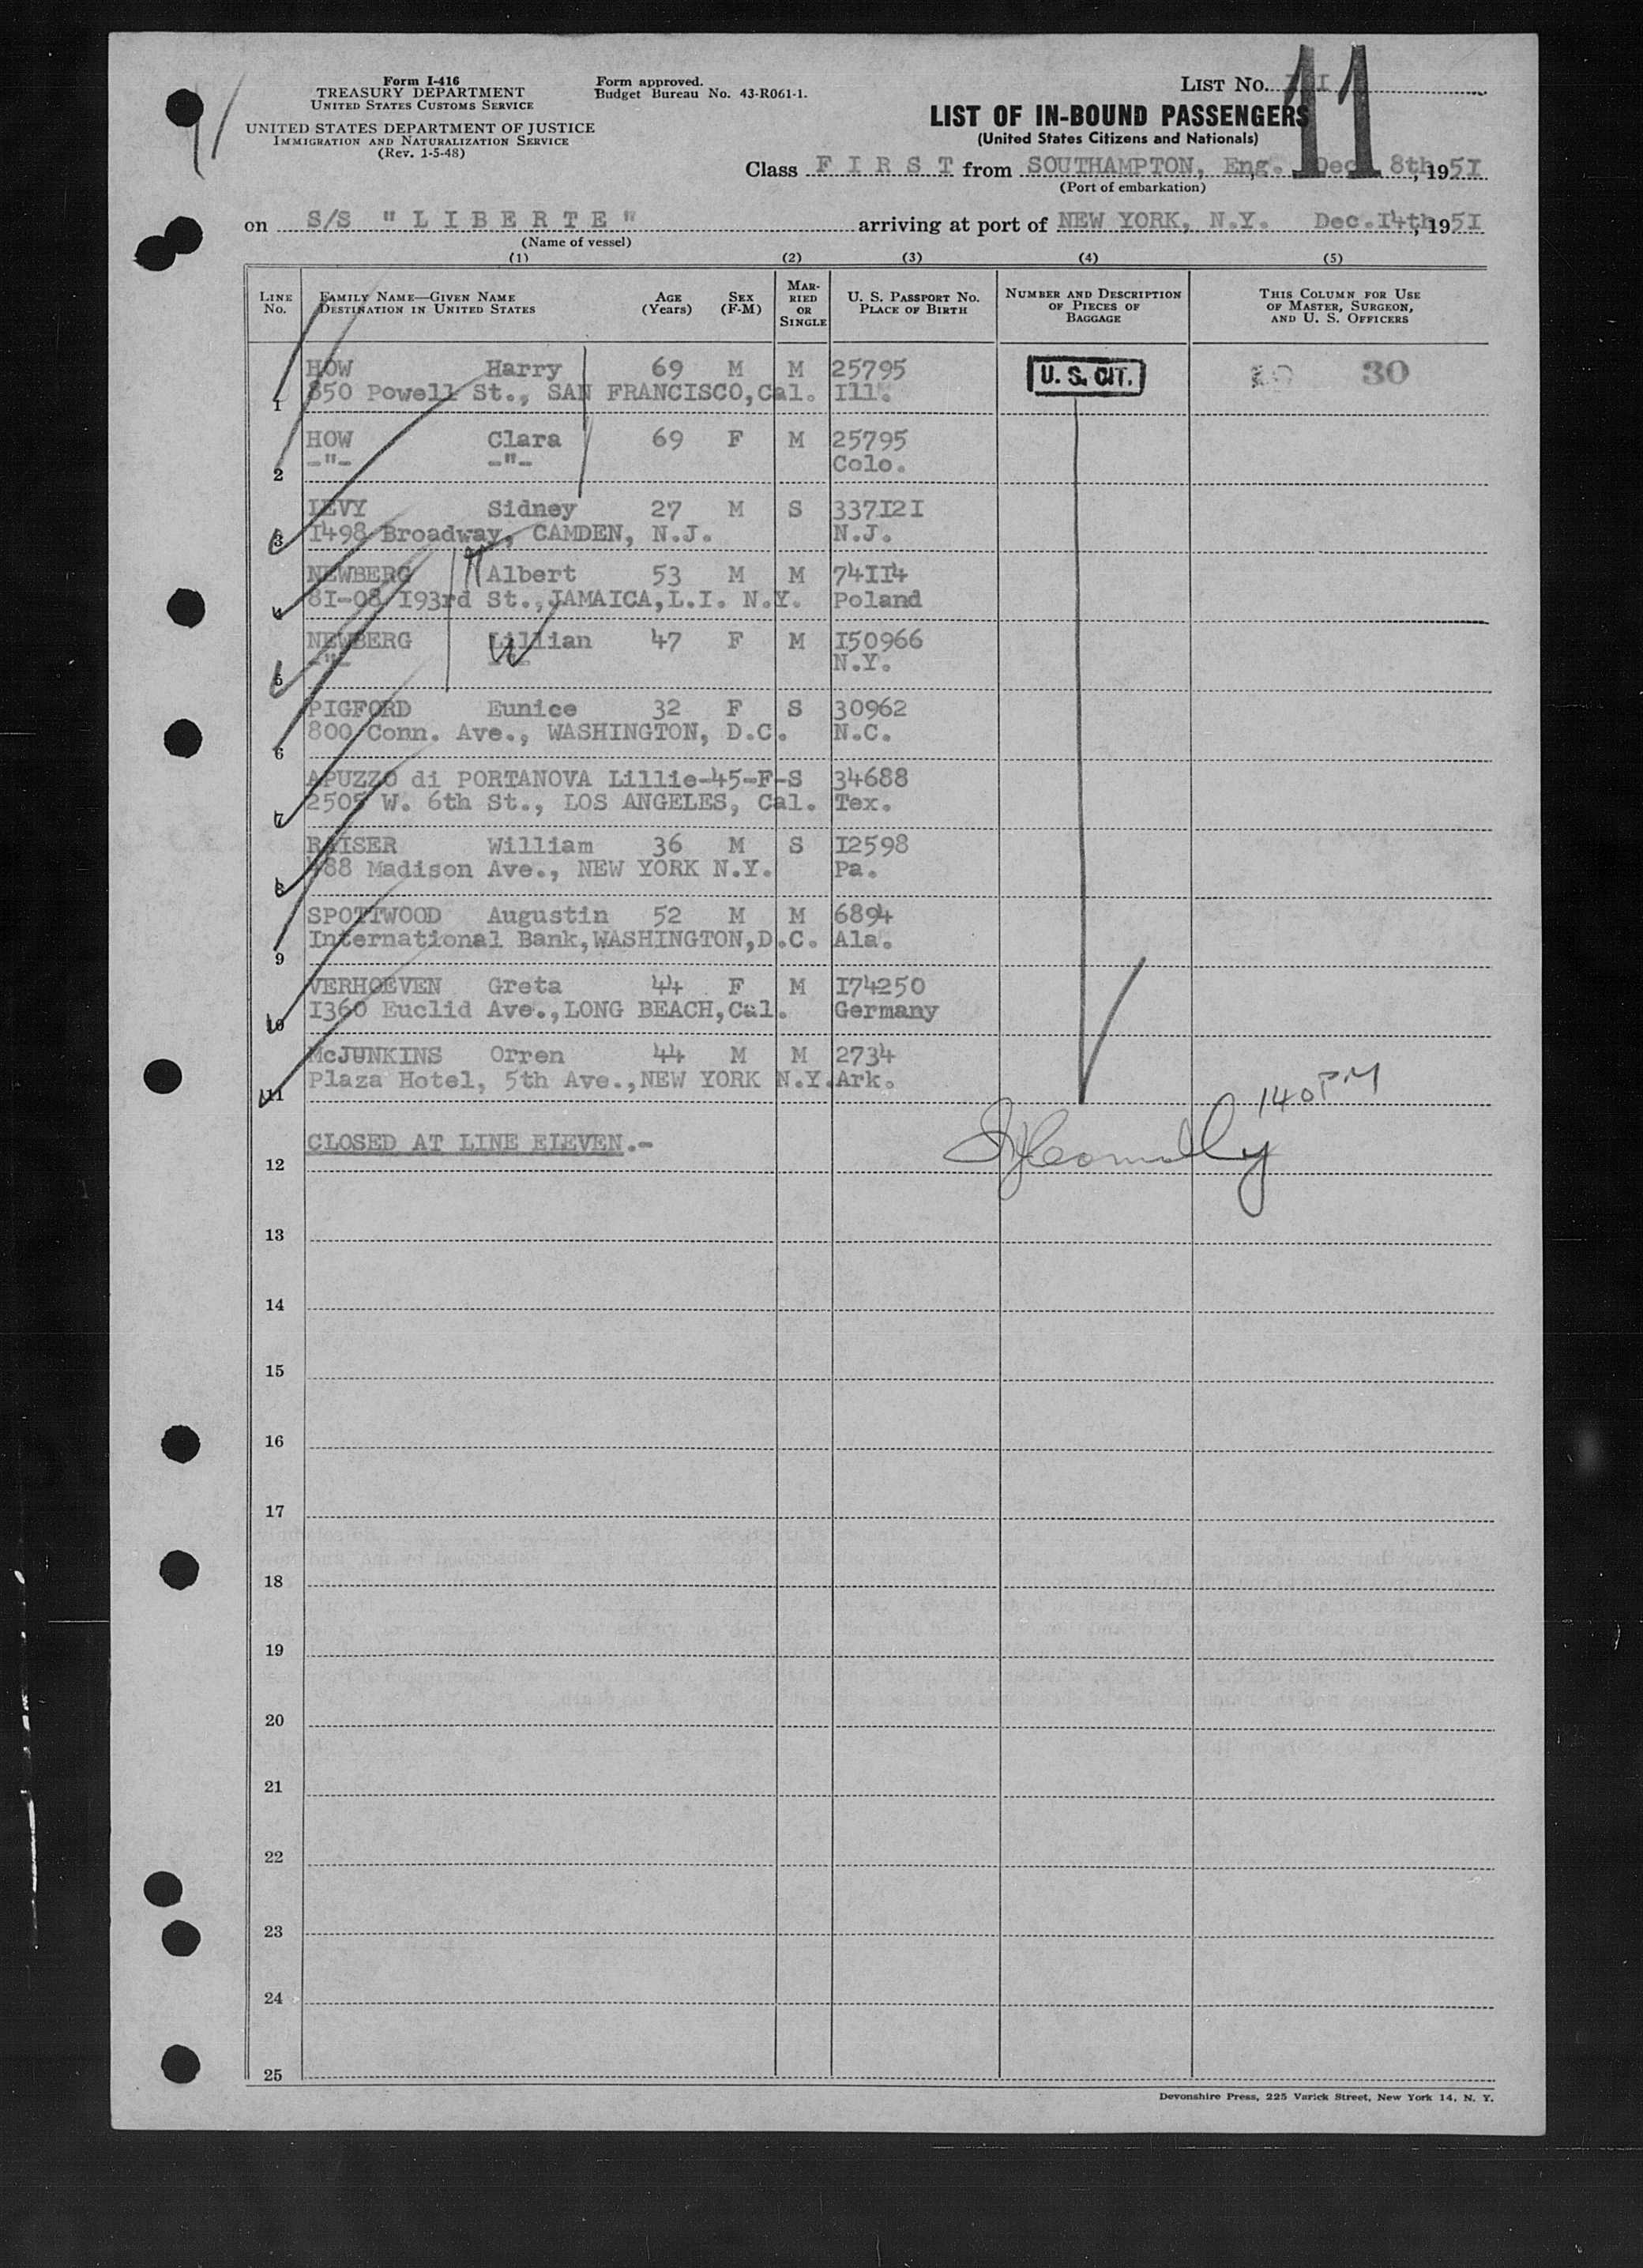 Form I-416
TREASURY DEPARTMENT
UNITED STATES CUSTOMS SERVICE
UNITED STATES DEPARTMENT OF JUSTICE
IMMIGRATION AND NATURALIZATION SERVICE
(Rev. 1-5-48)
Form approved.
Budget Bureau No. 43-R061-1.
LIST NO.
11
LIST OF IN-BOUND PASSENGERS
(United States Citizens and Nationals)
Class F I R S T from SOUTHAMPTON, Eng. Dec 8th, 1951
(Port of embarkation)
on S/S "L I B E R T E" arriving at port of NEW YORK, N.Y. Dec.14th, 1951
(Name of vessel)
(1) (2) (3) (4) (5)
LINE NO. FAMILY NAME—GIVEN NAME DESTINATION IN UNITED STATES AGE (Years) SEX (F-M) MARRIED OR SINGLE U. S. PASSPORT NO. PLACE OF BIRTH NUMBER AND DESCRIPTION OF PIECES OF BAGGAGE THIS COLUMN FOR USE OF MASTER, SURGEON, AND U. S. OFFICERS
HOW Harry 69 M M 25795 U. S. CIT. 30
1 850 Powell St., SAN FRANCISCO, Cal. Ill.
HOW Clara 69 F M 25795
2 -"- -"- Colo.
LEVY Sidney 27 M S 337121
3 1498 Broadway, CAMDEN, N.J. N.J.
NEWBERG Albert 53 M M 74114
4 81-08 193rd St., JAMAICA, L.I. N.Y. Poland
NEWBERG Lillian 47 F M 150966
5 -"- -"- N.Y.
PIGFORD Eunice 32 F S 30962
6 800 Conn. Ave., WASHINGTON, D.C. N.C.
APUZZO di PORTANOVA Lillie-45-F-S 34688
7 2505 W. 6th St., LOS ANGELES, Cal. Tex.
RAISER William 36 M S 12598
8 488 Madison Ave., NEW YORK N.Y. Pa.
SPOTTWOOD Augustin 52 M M 6894
9 International Bank, WASHINGTON, D.C. Ala.
VERHOEVEN Greta 44 F M 174250
10 1360 Euclid Ave., LONG BEACH, Cal. Germany
McJUNKINS Orren 44 M M 2734
11 Plaza Hotel, 5th Ave., NEW YORK N.Y. Ark.
140 PM
CLOSED AT LINE ELEVEN.-
12
13
14
15
16
17
18
19
20
21
22
23
24
25
Devonshire Press, 225 Varick Street, New York 14, N. Y.